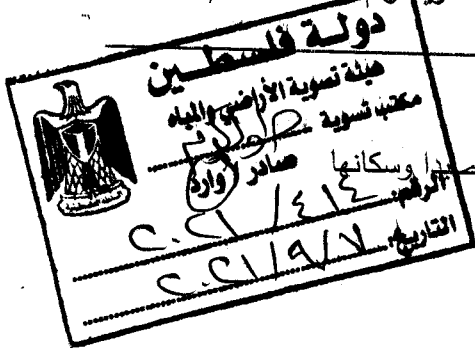 دولة فلسطين
هيئة تسوية الأراضي والمياه
مكتب تسوية
صادر / وارد
وسكانها
الرقم: ٤١٤ / ٢٠٢١
التاريخ: ٧ / ٩ / ٢٠٢١